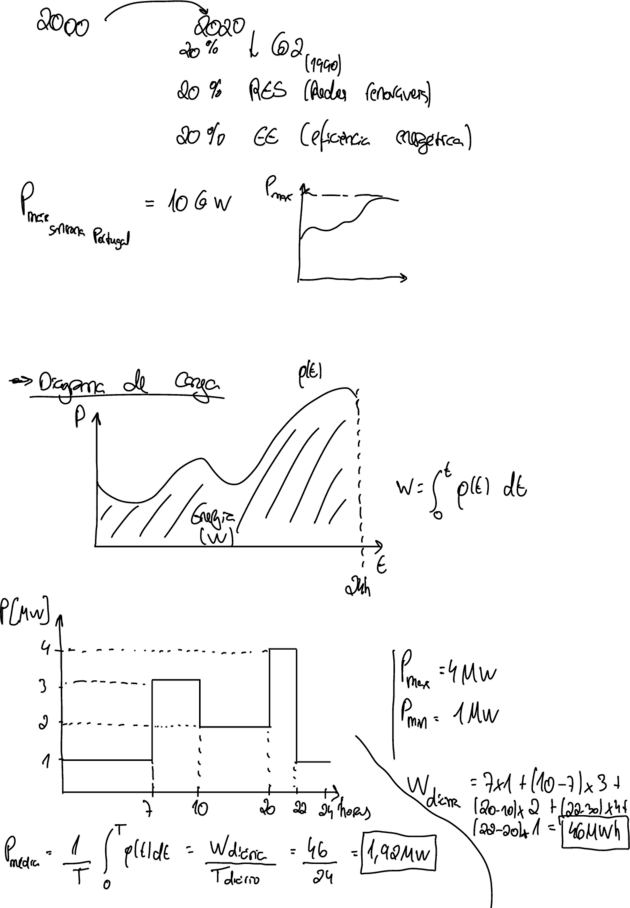 2000 2020
20% ↓ CO2 (1990)
20% RES (Redes renováveis)
20% EE (eficiência energética)
P max = 10 GW
sistema Portugal
Pmax
→ Diagrama de Carga
P
p(t)
Energia
(W)
W = ∫₀ᵗ p(t) dt
t
24h
P[MW]
4
3
2
1
7 10 20 22 24 horas
Pmax = 4MW
Pmin = 1MW
Wdiária = 7x1 + (10-7)x3 +
(20-10)x2 + (22-20)x4+
(22-20)x1 = 46MWh
Pmédia = 1/T ∫₀ᵀ p(t)dt = Wdiária/Tdiário = 46/24 = 1,92MW